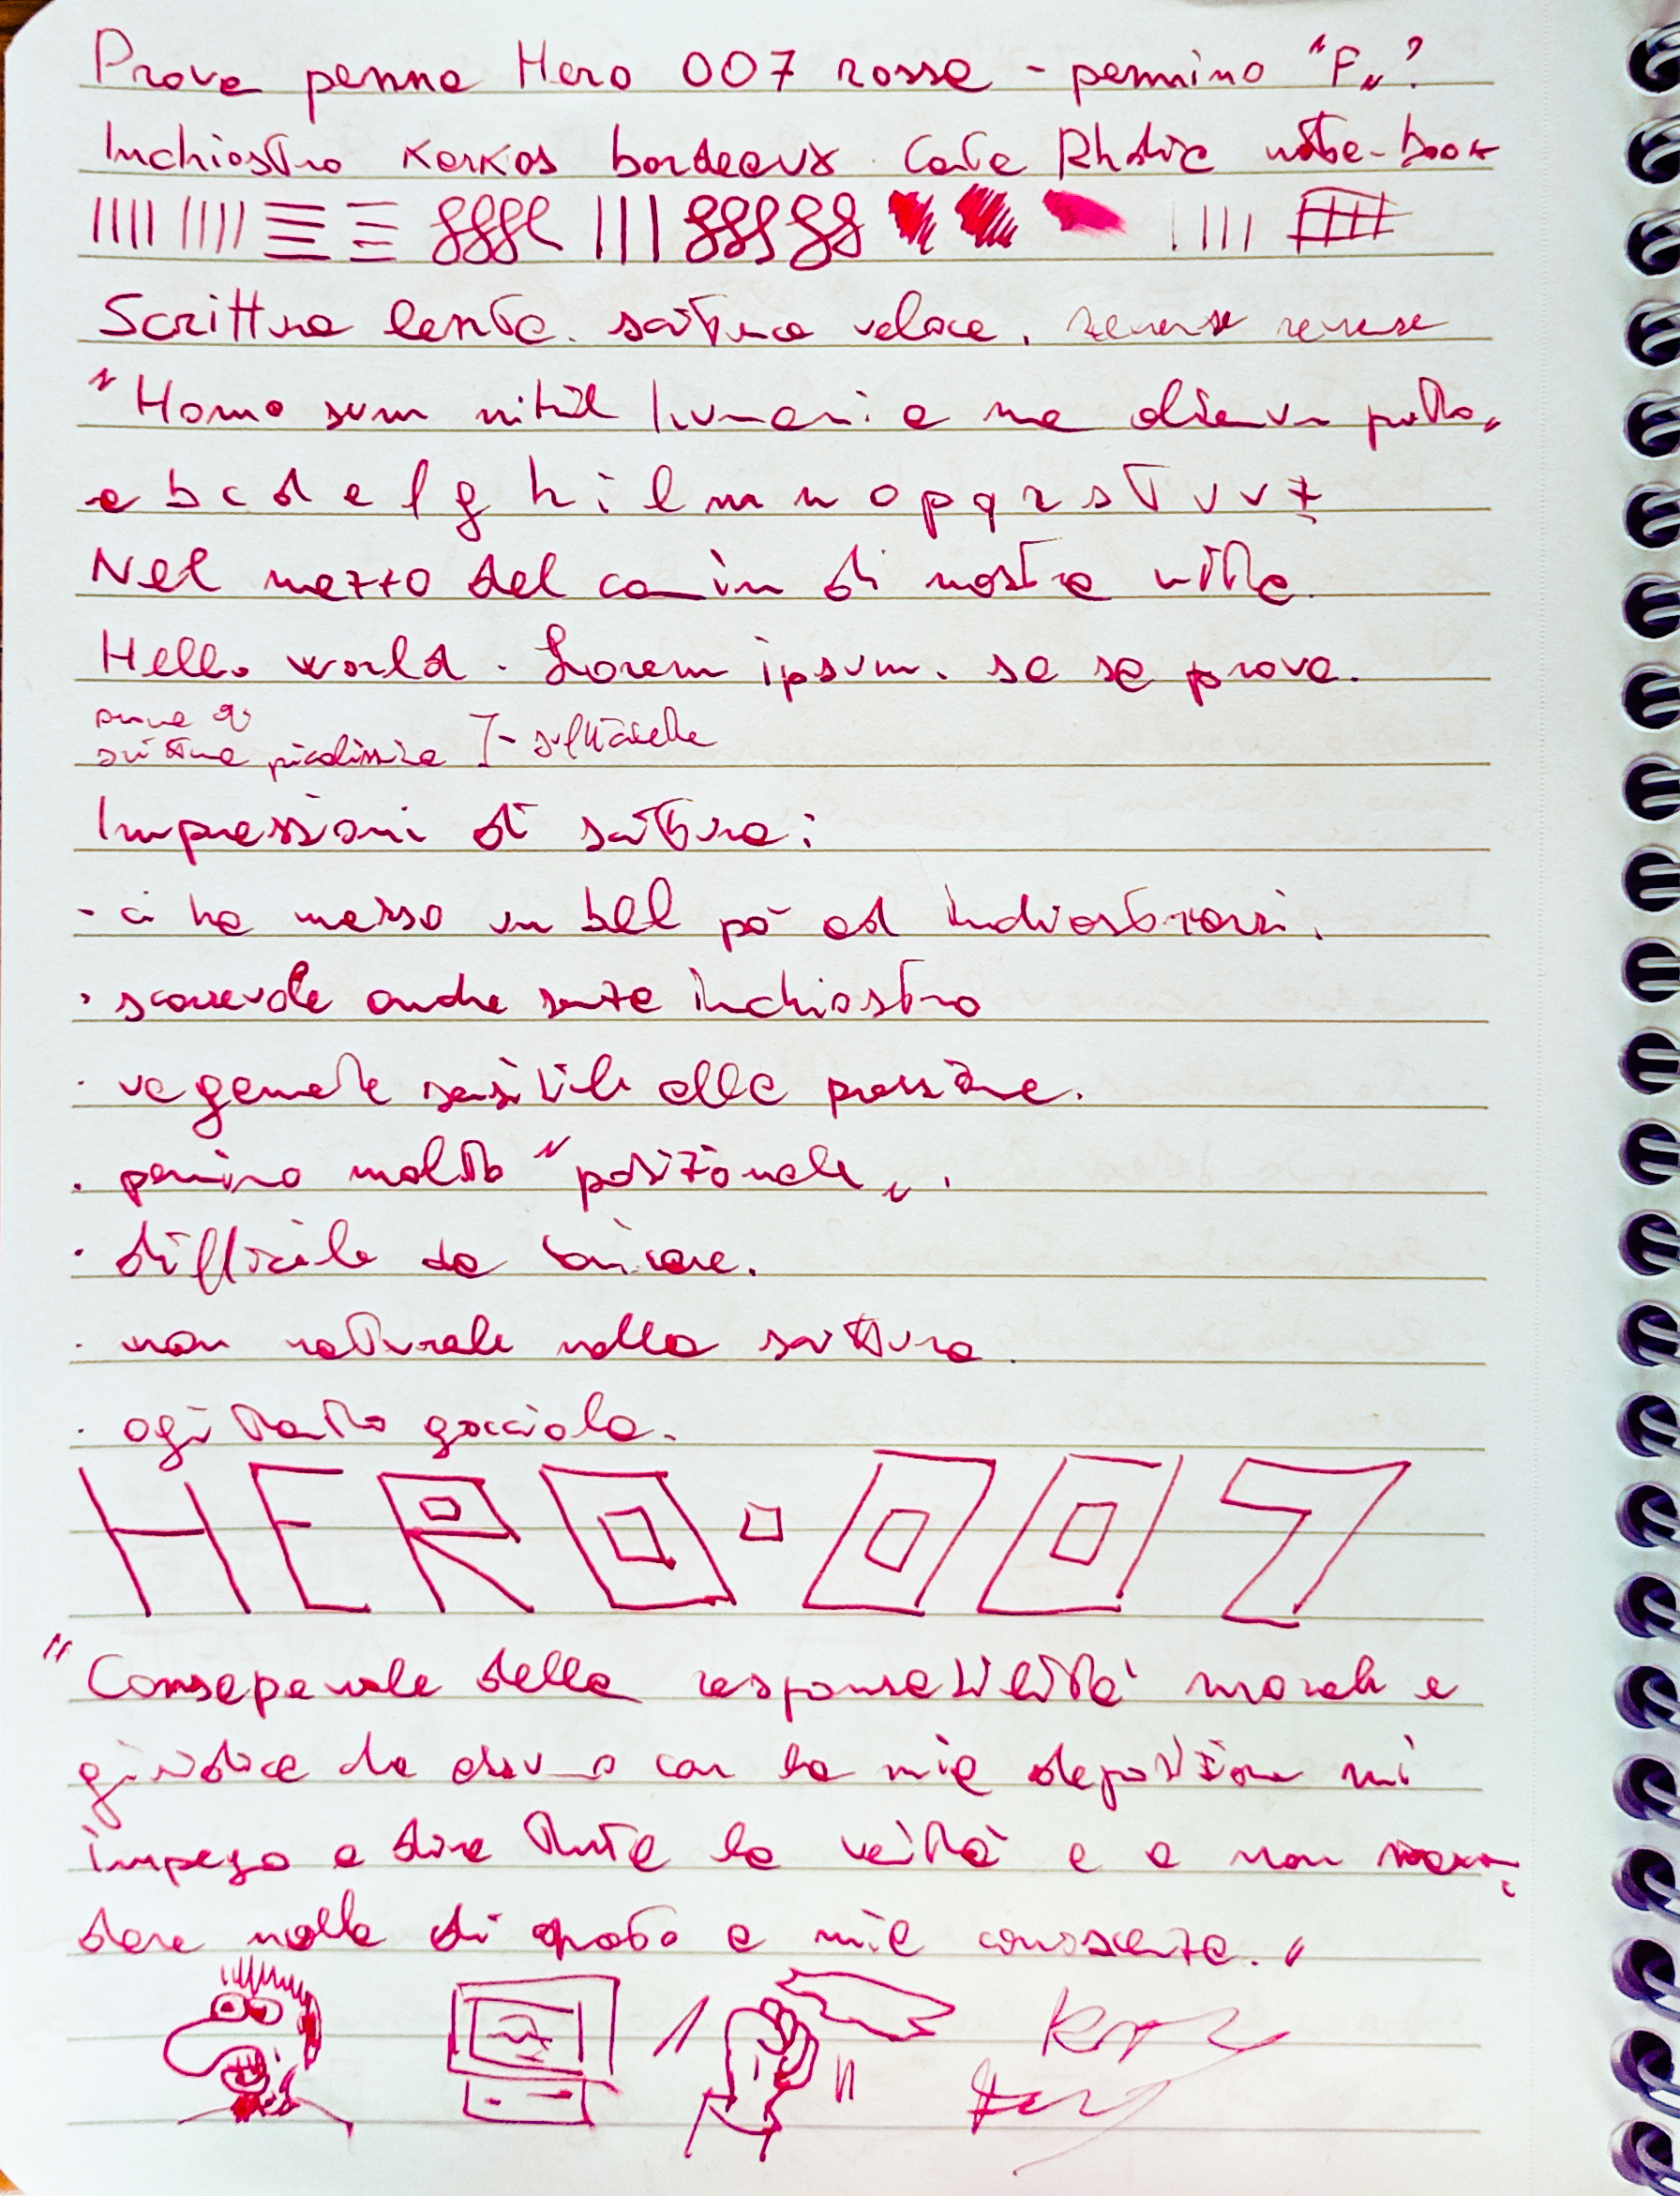 Prova penna Hero 007 rossa - pennino "F"?
Inchiostro Kerkos bordeaux. Carta Rhodia note-book
Scrittura lenta. scrittura veloce. reverse reverse
"Homo sum nihil humani a me alienum puto"
a b c d e f g h i l m n o p q r s t u v z
Nel mezzo del camin di nostra vita.
Hello world. Lorem ipsum. sa sa prova.
prova di
scrittura piccolissima
Impressioni di scrittura:
- ci ha messo un bel pò ad inchiostrarsi.
· scorrevole anche senza inchiostro
· vagamente sensibile alla pressione.
· pennino molto "posizionale".
· difficile da caricare.
· non naturale nella scrittura.
· agitato gocciola.
HERO·007
"Consapevole della responsabilità morale e
giuridica che assumo con la mia deposizione mi
impegno a dire tutta la verità e a non nascon-
dere nulla di quanto a mia conoscenza."